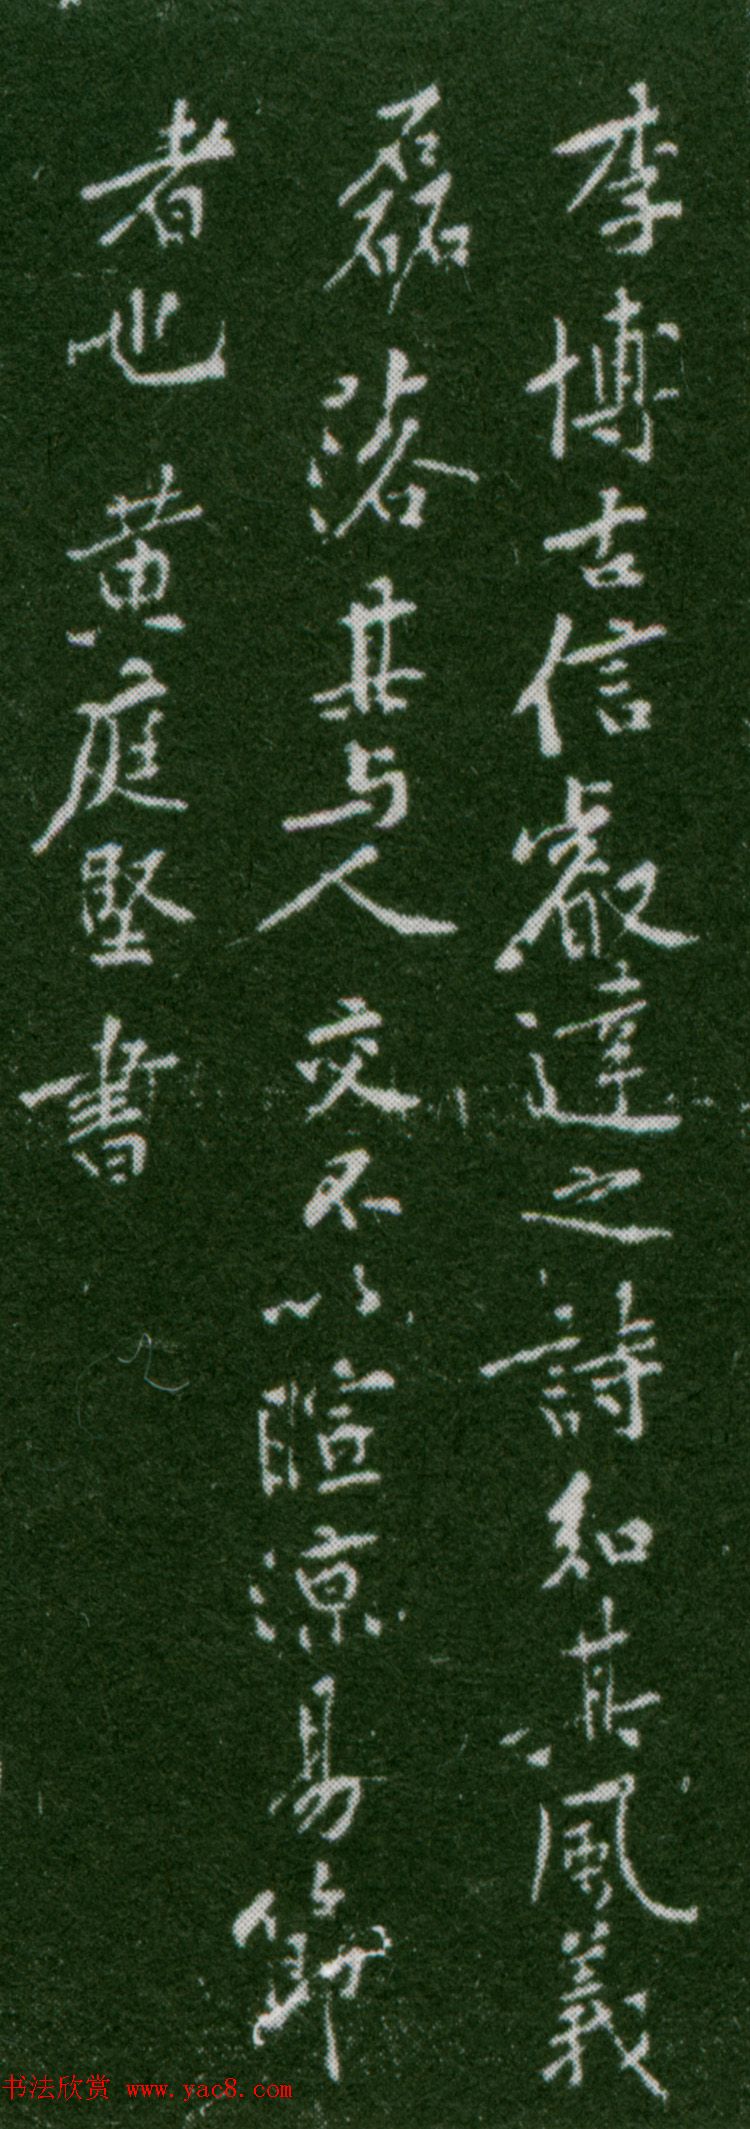 李博古信叡達之詩知其風義
磊落其与人交不以暄涼易節
者也黄庭堅書
书法欣赏 www.yac8.com